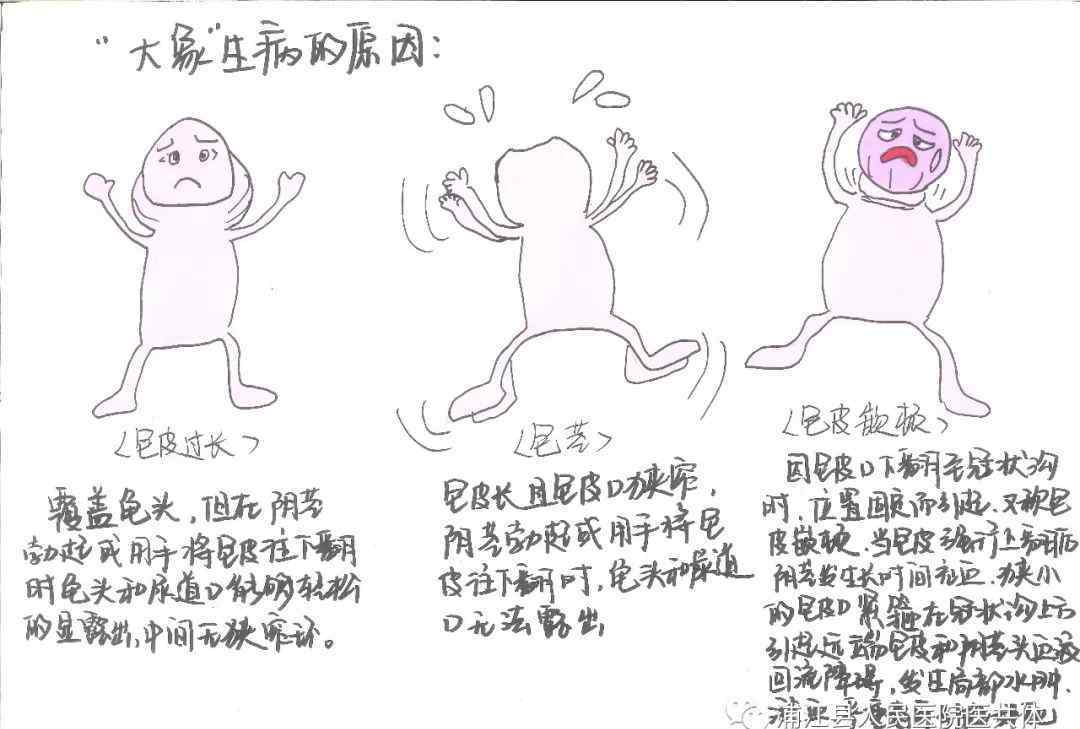 “大象”生病的原因:
〈包皮过长〉
覆盖龟头,但在阴茎
勃起或用手将包皮往下翻
时龟头和尿道口能够轻松
的显露出,中间无狭窄环。
〈包茎〉
包皮长且包皮口狭窄,
阴茎勃起或用手将包
皮往下翻时,龟头和尿道
口无法露出
〈包皮嵌顿〉
因包皮口下翻至冠状沟
时,位置固定而引起,又称包
皮嵌顿.当包皮强行上翻后
阴茎发生长时间充血.狭小
的包皮口紧箍在冠状沟上方
引起远端包皮和阴茎头血液
回流障碍,发生局部水肿.
浦江县人民医院医共体